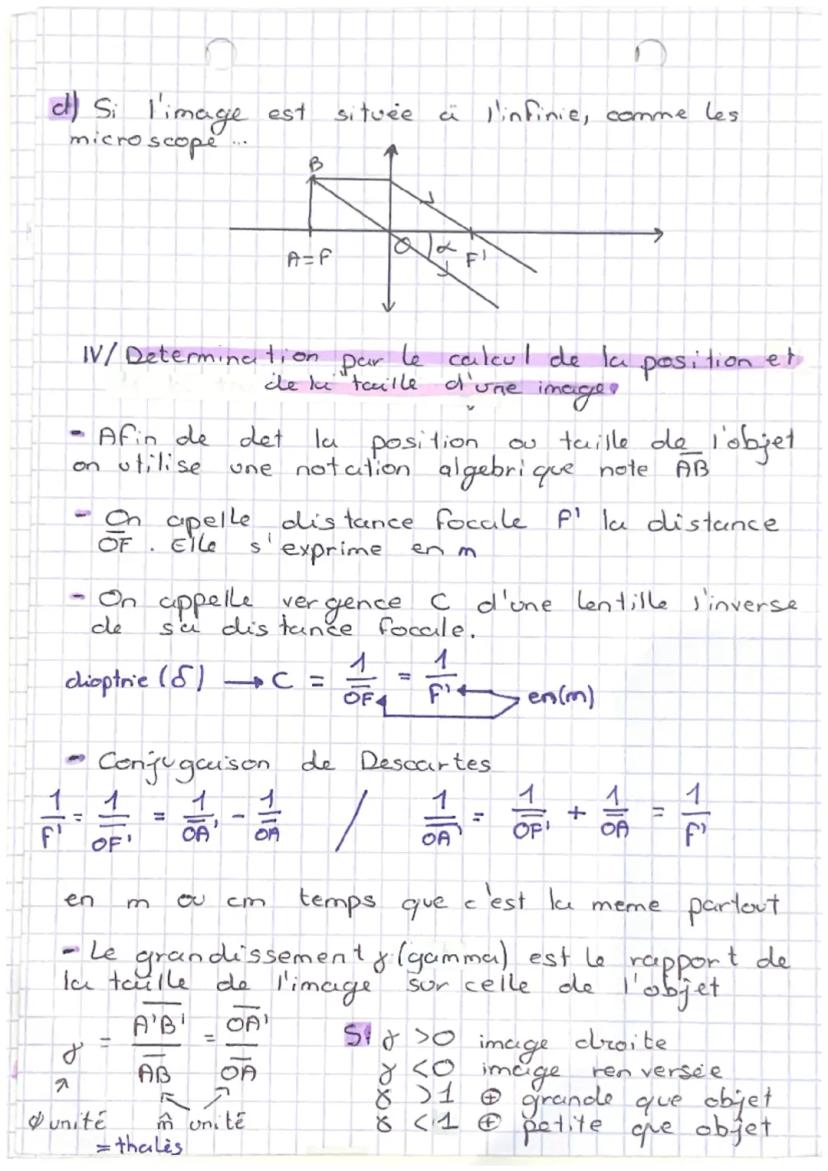 d) Si l'image est située à l'infinie, comme les
microscope...
B
A=F
O
α
F'
IV/ Determination par le calcul de la position et
de la taille d'une image.
- Afin de det la position ou taille de l'objet
on utilise une notation algebrique note A̅B̅
- On apelle distance focale f' la distance
O̅F̅. Elle s'exprime en m
- On appelle vergence C d'une lentille l'inverse
de sa distance focale.
dioptrie (δ) → C = 1/O̅F̅ = 1/F' en(m)
- Conjugaison de Descartes
1/F' = 1/O̅F̅' = 1/O̅A̅' - 1/O̅A̅ / 1/O̅A̅' = 1/O̅F̅' + 1/O̅A̅ = 1/F'
en m ou cm temps que c'est la meme partout
- Le grandissement γ (gamma) est le rapport de
la taille de l'image sur celle de l'objet
γ = A̅'B̅'/A̅B̅ = O̅A̅'/O̅A̅
Ø unité
m̂ unité
= thalès
Si γ >0 image droite
γ <0 image renversée
γ >1 ⊕ grande que objet
γ <1 ⊕ petite que objet